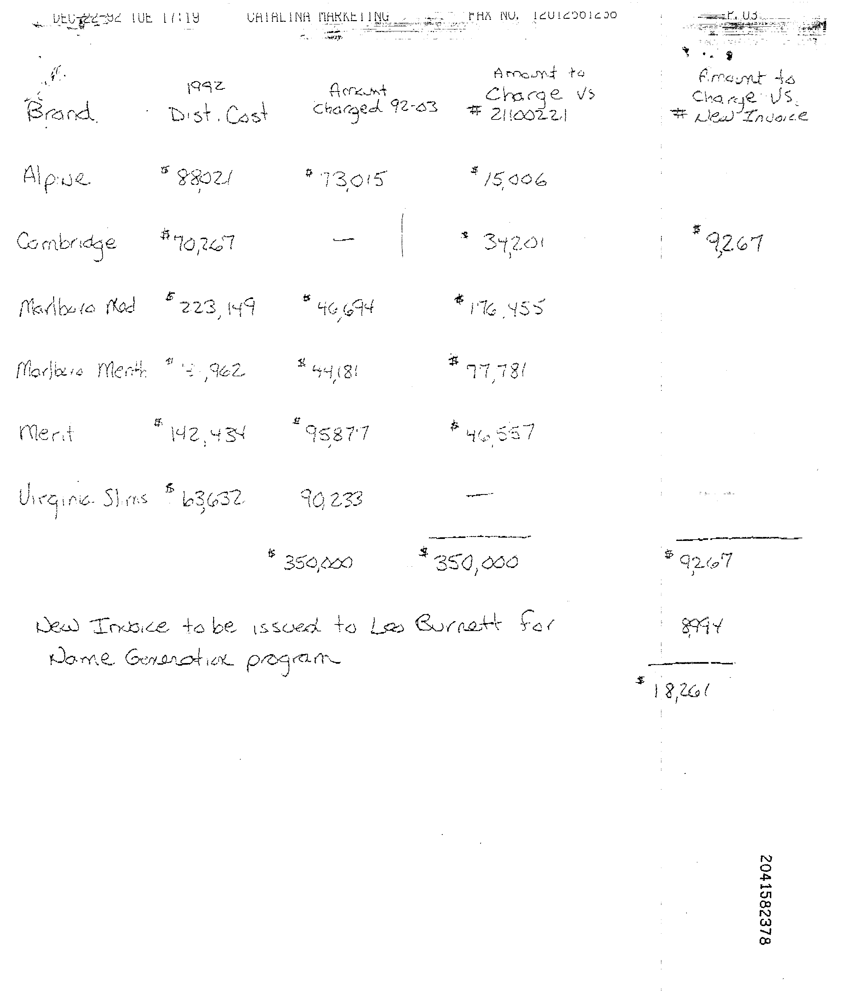 DEC-22-92 TUE 17:19 CATALINA MARKETING FAX NO. 12012501250 P.03
1992 Amount Amount to Amount to
Brand Dist. Cost Charged 92-03 Charge Vs # 21100221 Charge Vs. # New Invoice
Alpine $ 88,021 $ 73,015 $ 15,006
Cambridge $ 70,267 — $ 34,201 $ 9,267
Marlboro Med $ 223,149 $ 46,694 $ 176,455
Marlboro Menth $ ,962 $ 44,181 $ 77,781
Merit $ 142,434 $ 95,877 $ 46,557
Virginia Slims $ 63,632 90,233 —
$ 350,000 $ 350,000 $ 9,267
New Invoice to be issued to Leo Burnett for 8,994
Name Generation program
$ 18,261
2041582378